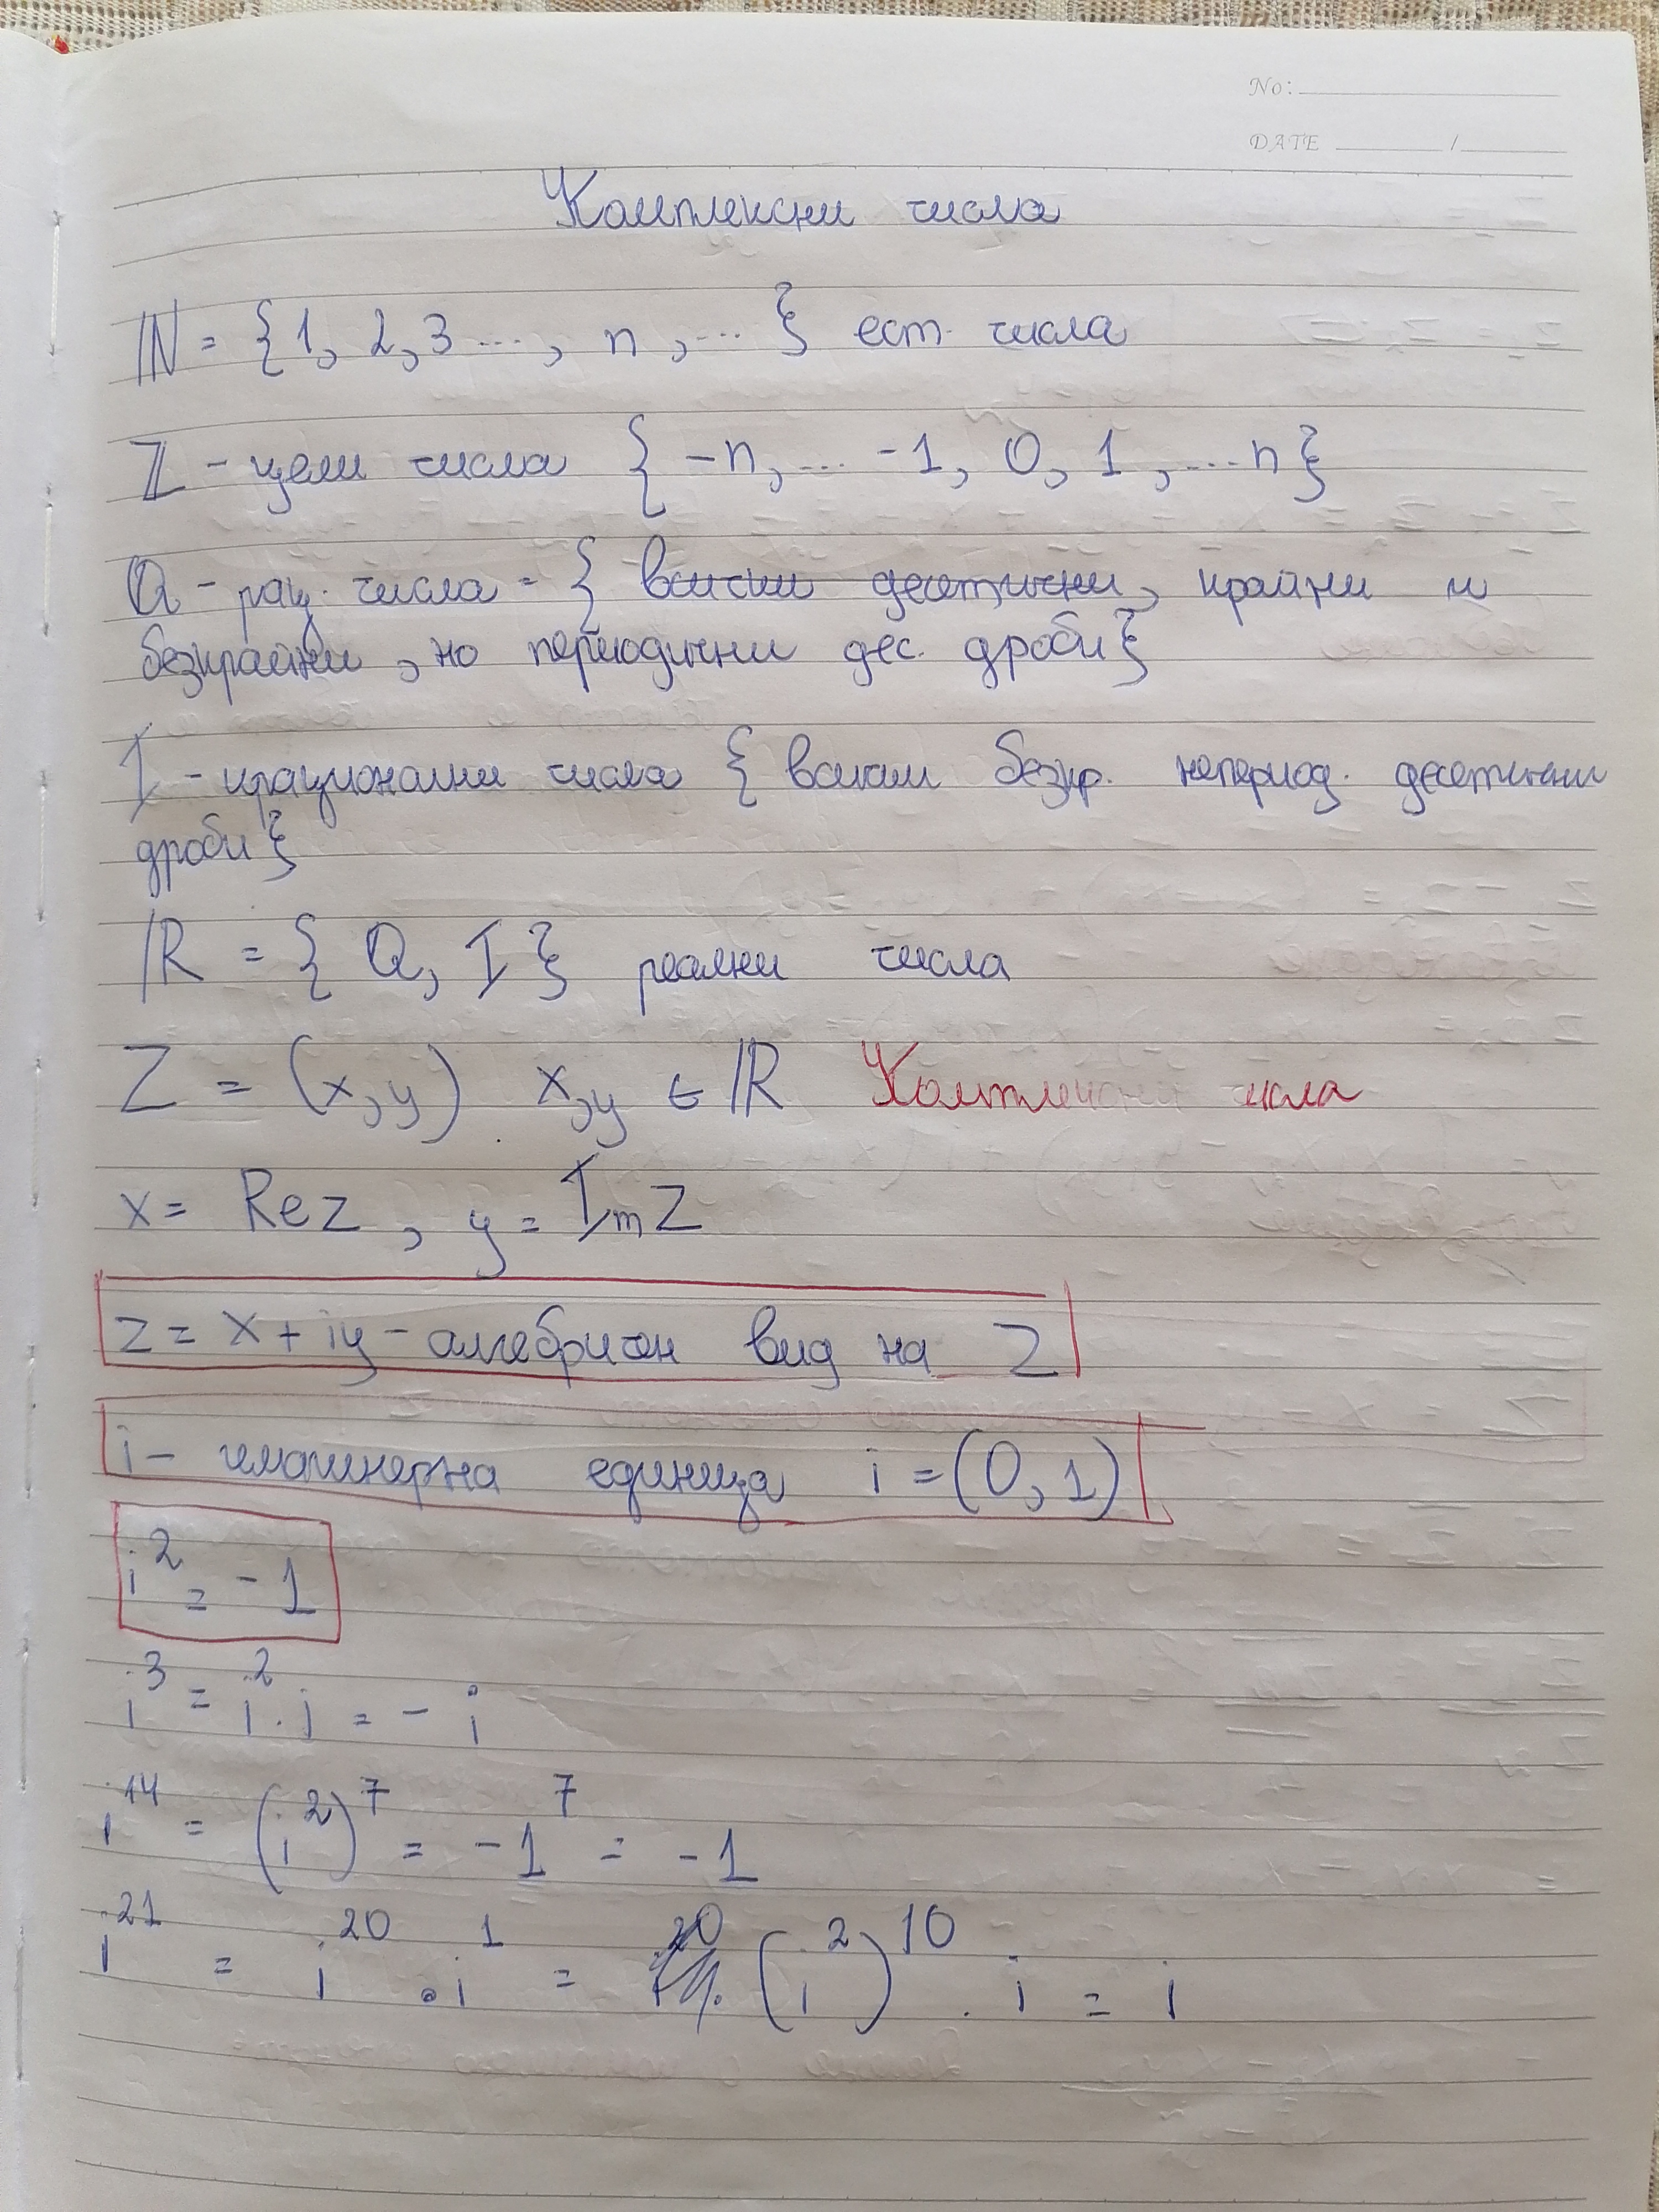 No:
DATE /
Комплексни числа
ℕ = {1, 2, 3 ..., n, ...} ест. числа
ℤ - цели числа {-n, ... -1, 0, 1, ... n}
Q - рац. числа = { всички десетични, крайни и
безкрайни, но периодични дес. дроби}
I - ирационални числа { всички безкр. непериод. десетични
дроби}
ℝ = { Q, I } реални числа
Z = (x, y) x, y ∈ ℝ Комплексни числа
x = Re z, y = Im z
z = x + iy - алгебричен вид на z
i - имагинерна единица i = (0, 1)
i² = -1
i³ = i² . i = - i
i¹⁴ = (i²)⁷ = -1⁷ = -1
i²¹ = i²⁰ . i¹ = (i²)¹⁰ . i = i